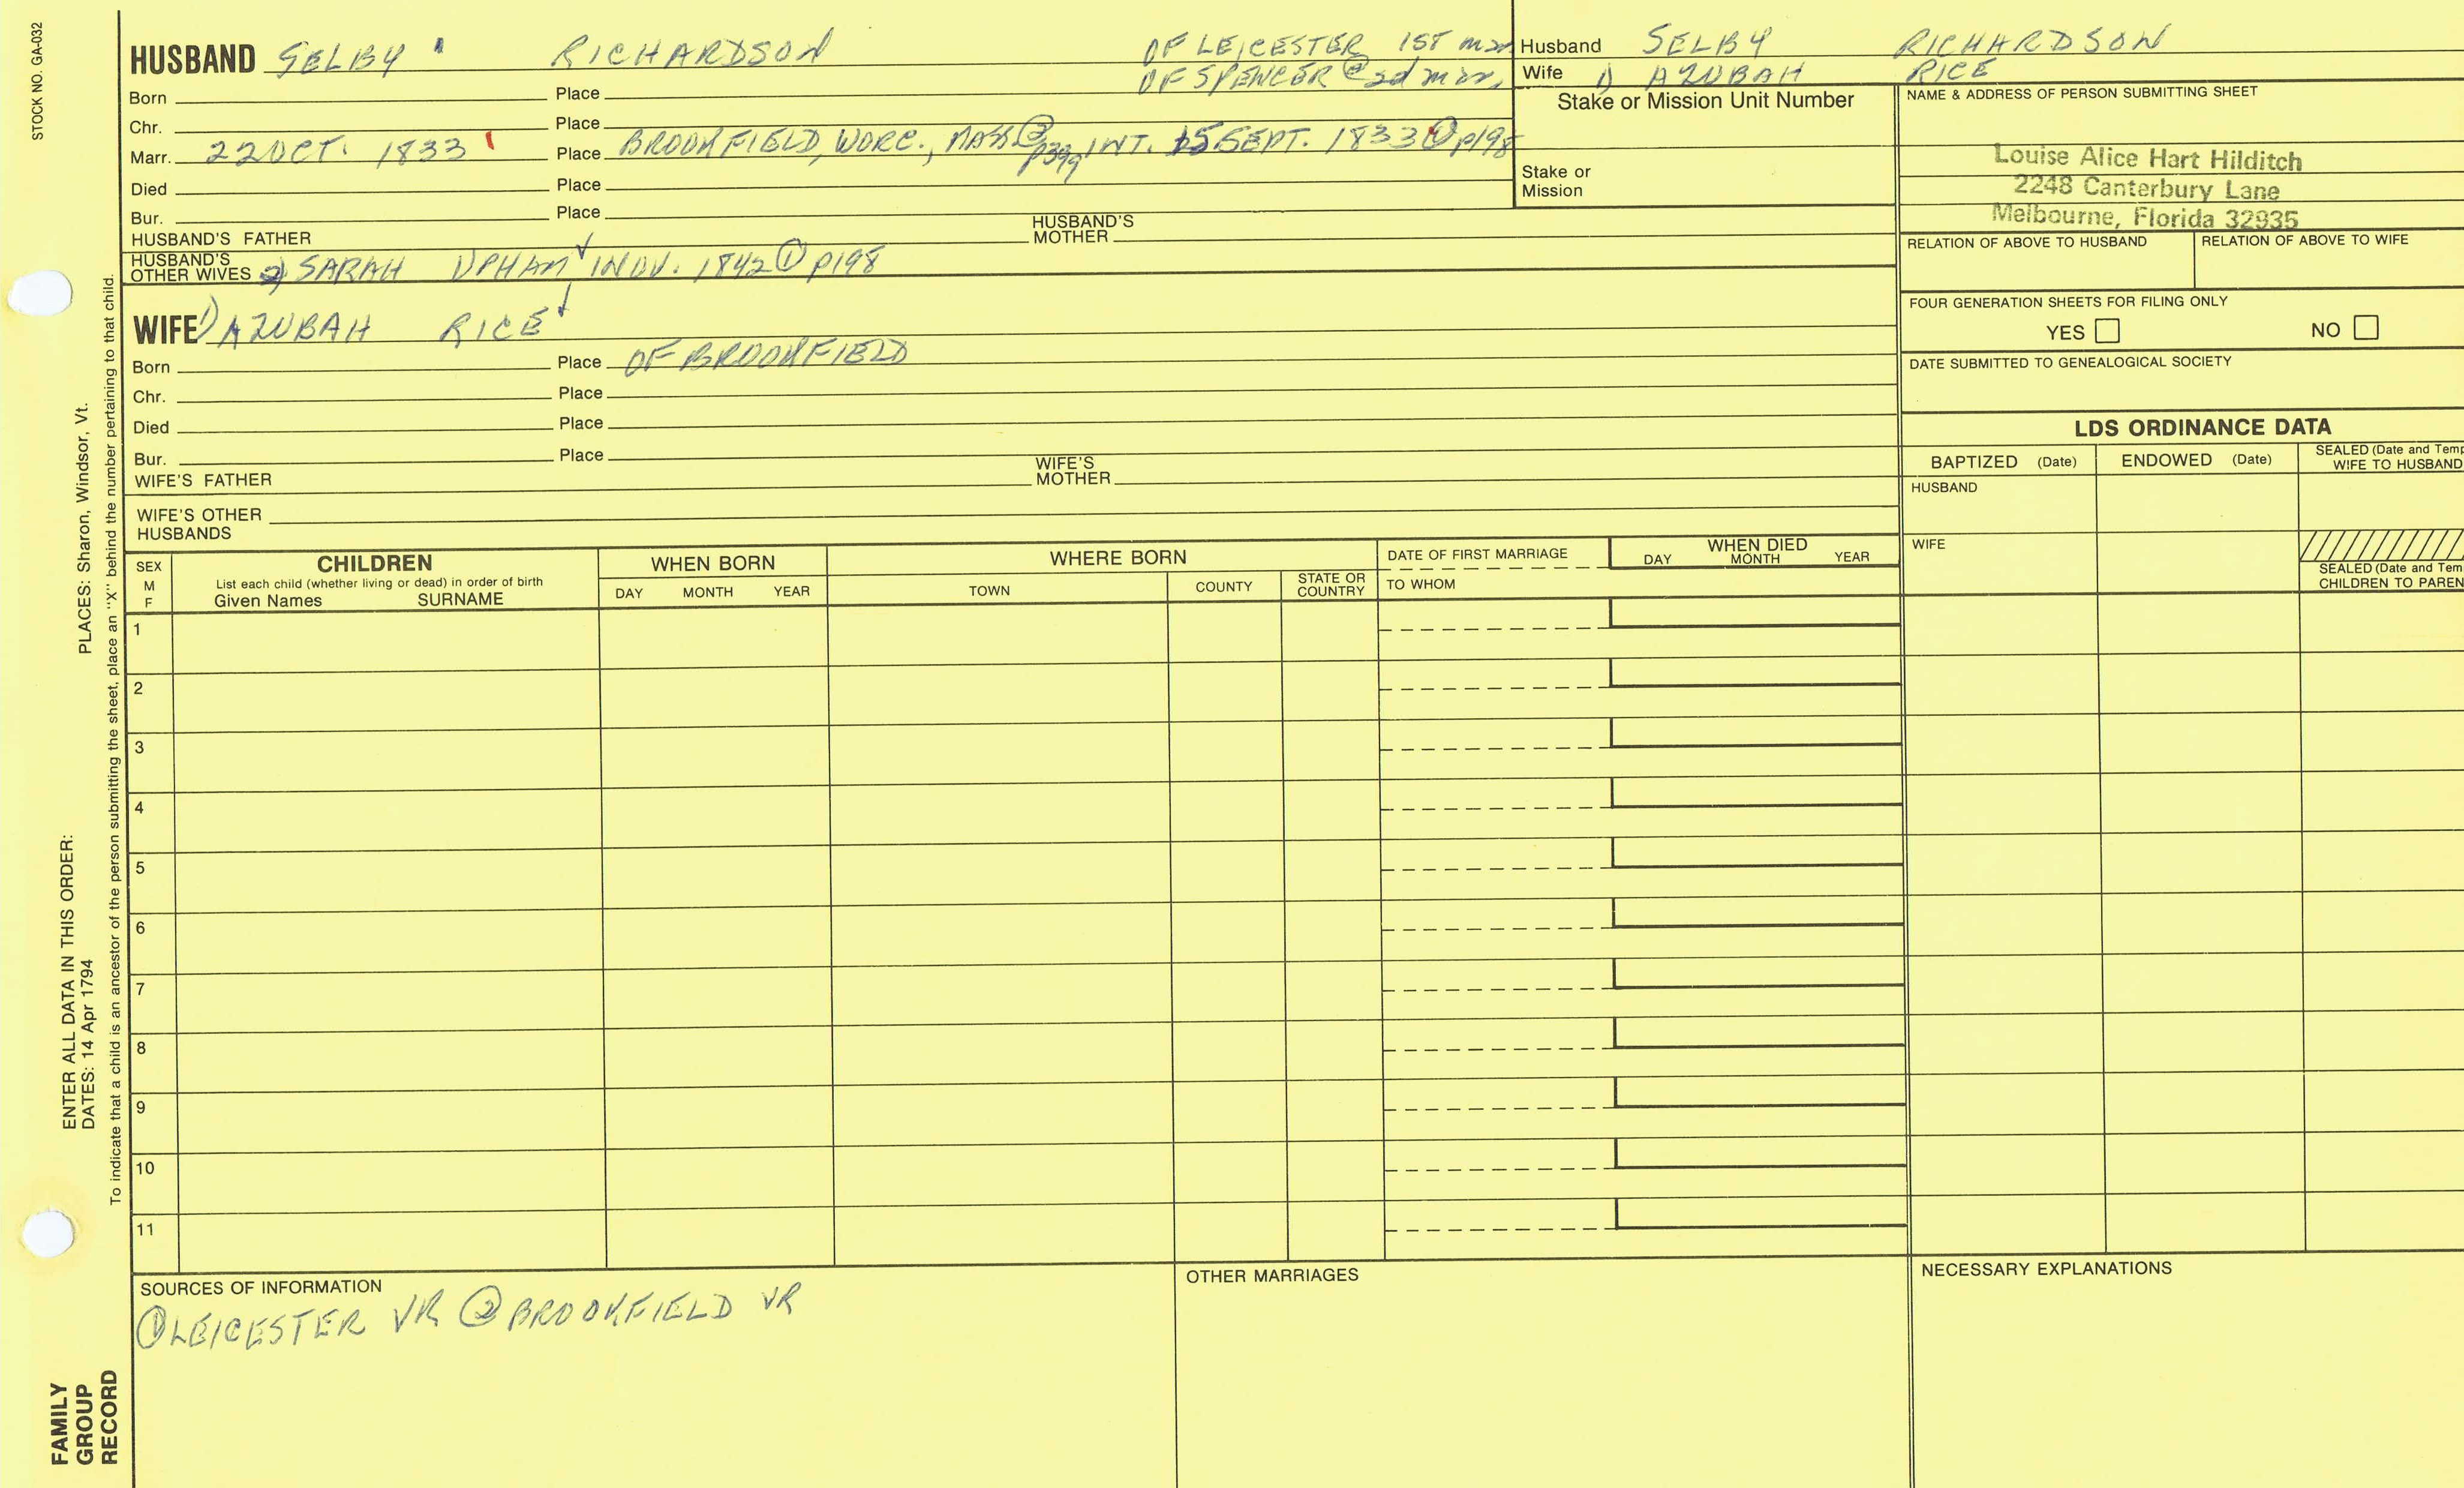 STOCK NO. GA-032
HUSBAND SELBY RICHARDSON OF LEICESTER 1ST mar
OF SPENCER @ 2d mar,
Born Place
Chr. Place
Marr. 22 OCT. 1833 Place BROOKFIELD, WORC., MASS ② p399 INT. 15 SEPT. 1833 ① p198
Died Place
Bur. Place
HUSBAND'S FATHER HUSBAND'S MOTHER
HUSBAND'S OTHER WIVES 2) SARAH UPHAM 1 NOV. 1842 ① p198
WIFE 1) AZUBAH RICE
Born Place OF BROOKFIELD
Chr. Place
Died Place
Bur. Place
WIFE'S FATHER WIFE'S MOTHER
WIFE'S OTHER HUSBANDS
Husband SELBY RICHARDSON
Wife 1) AZUBAH RICE
Stake or Mission Unit Number
Stake or
Mission
NAME & ADDRESS OF PERSON SUBMITTING SHEET
Louise Alice Hart Hilditch
2248 Canterbury Lane
Melbourne, Florida 32935
RELATION OF ABOVE TO HUSBAND RELATION OF ABOVE TO WIFE
FOUR GENERATION SHEETS FOR FILING ONLY
YES NO
DATE SUBMITTED TO GENEALOGICAL SOCIETY
LDS ORDINANCE DATA
BAPTIZED (Date) ENDOWED (Date) SEALED (Date and Temp
WIFE TO HUSBAND
HUSBAND
WIFE
SEALED (Date and Tem
CHILDREN TO PAREN
SEX
M
F
CHILDREN
List each child (whether living or dead) in order of birth
Given Names SURNAME
WHEN BORN
DAY MONTH YEAR
WHERE BORN
TOWN COUNTY STATE OR COUNTRY
DATE OF FIRST MARRIAGE
TO WHOM
WHEN DIED
DAY MONTH YEAR
1
2
3
4
5
6
7
8
9
10
11
SOURCES OF INFORMATION
① LEICESTER VR ② BROOKFIELD VR
OTHER MARRIAGES
NECESSARY EXPLANATIONS
PLACES: Sharon, Windsor, Vt.
ENTER ALL DATA IN THIS ORDER:
DATES: 14 Apr 1794
To indicate that a child is an ancestor of the person submitting the sheet, place an "X" behind the number pertaining to that child.
FAMILY
GROUP
RECORD